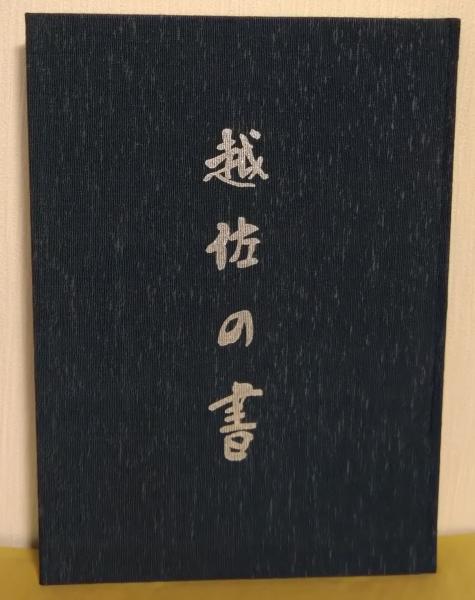 越佐の書